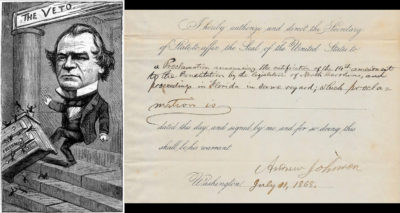 THE VETO.
I hereby authorize and direct the Secretary
of State to affix the Seal of the United States to
a Proclamation announcing the ratification of the 14th amendment
to the Constitution by the legislature of North Carolina, and
proceedings in Florida in same regard; which procla-
mation is
dated this day, and signed by me, and for so doing this
shall be his warrant.
Andrew Johnson
Washington, July 11, 1868.